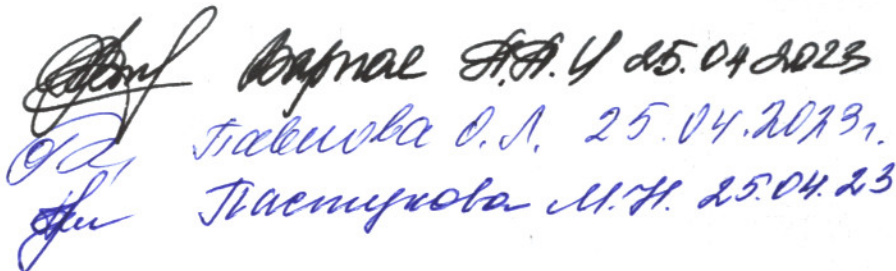 25.04.2023
Павлова О.Л. 25.04.2023г.
Пастухова М.Н. 25.04.23